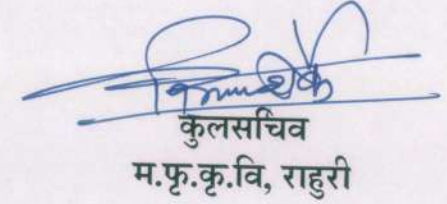 कुलसचिव
म.फृ.कृ.वि, राहुरी